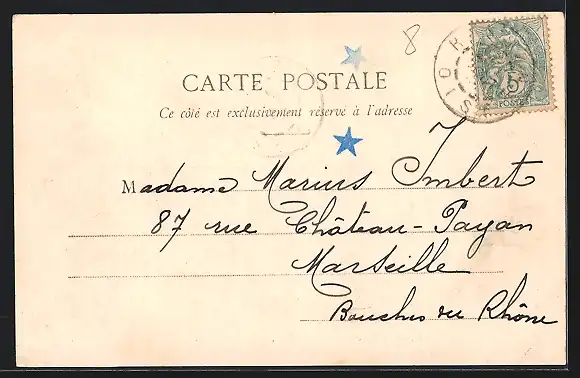 8
CARTE POSTALE
Ce côté est exclusivement réservé à l'adresse
Madame Marius Imbert
87 rue Château-Payan
Marseille
Bouches du Rhône
5c
POSTES